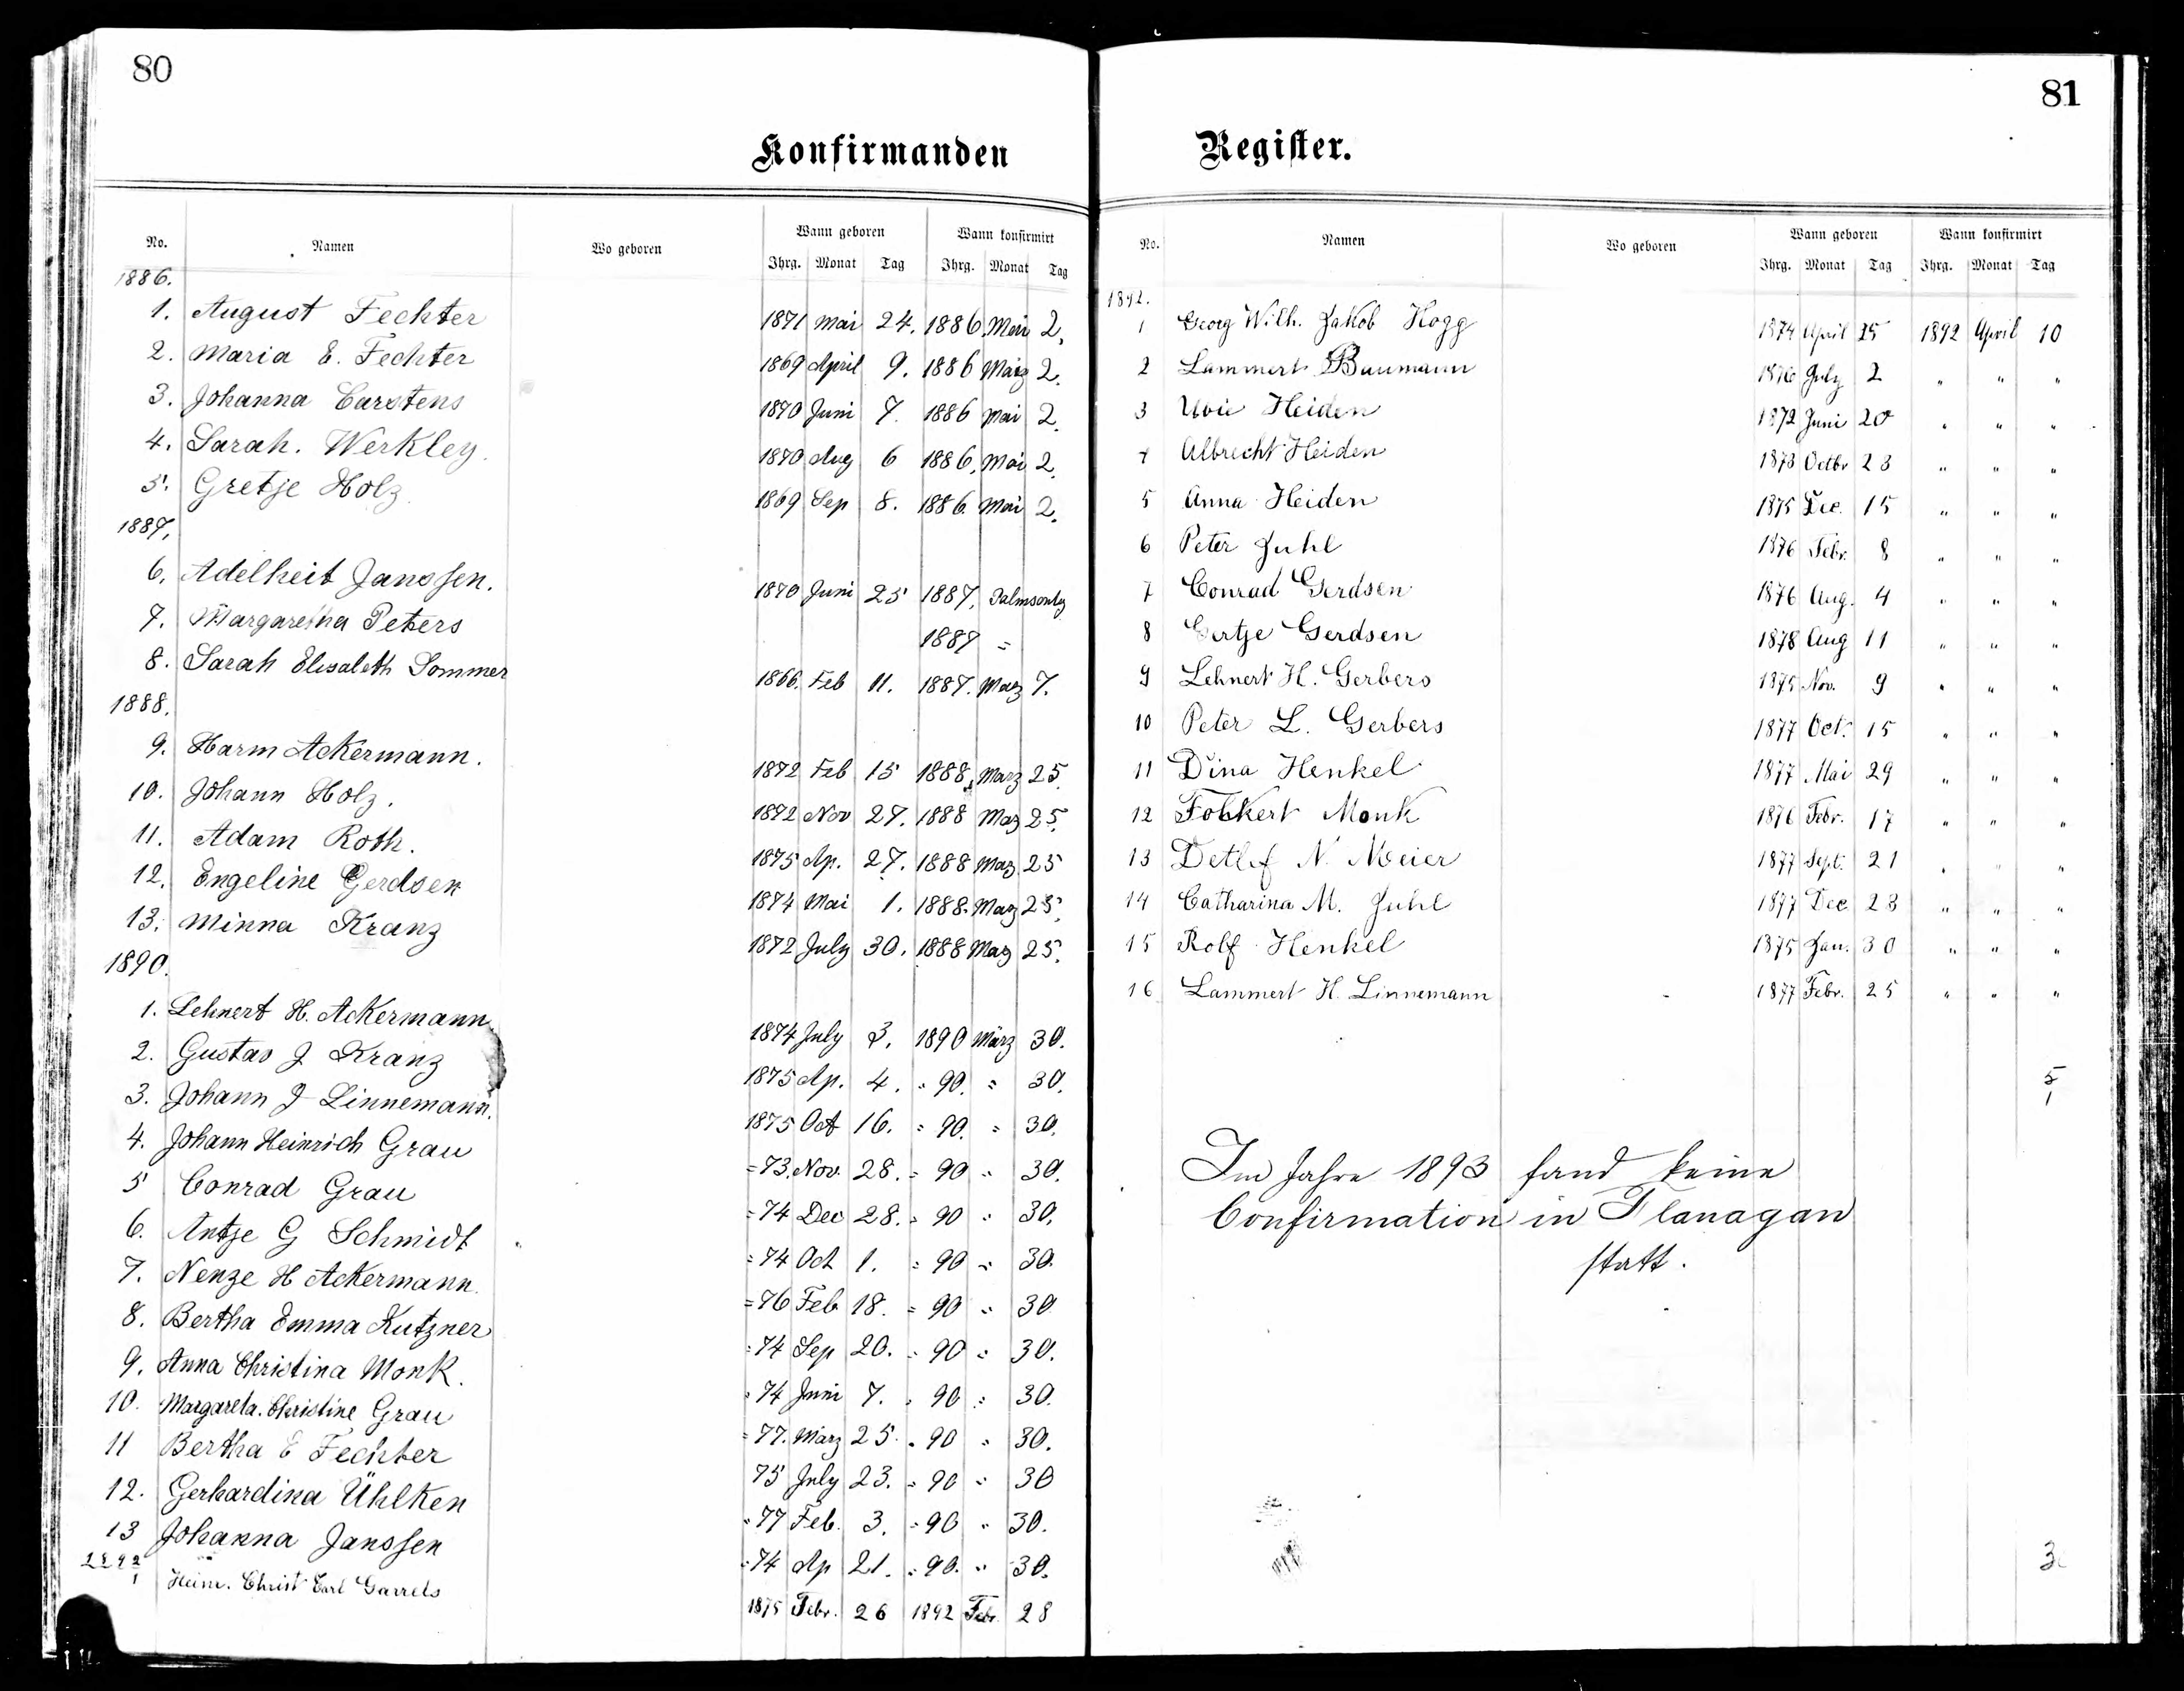 80
Konfirmanden
No. Namen Wo geboren Wann geboren Wann konfirmirt
Jhrg. Monat Tag Jhrg. Monat Tag
1886.
1. August Fechter 1871 Mai 24. 1886. Mai 2.
2. Maria E. Fechter 1869 April 9. 1886 März 2.
3. Johanna Carstens 1870 Juni 7. 1886 Mai 2.
4. Sarah. Werkley. 1870 Aug 6 1886, Mai 2.
5. Gretje Holz 1869 Sep 8. 1886. Mai 2.
1887.
6. Adelheit Janssen. 1870 Juni 25 1887. Palmsontg
7. Margaretha Peters 1887 =
8. Sarah Elisabeth Sommer 1866. Feb 11. 1887. Marz 7.
1888.
9. Harm Ackermann. 1872 Feb 15 1888, Marz 25.
10. Johann Holz. 1872 Nov 27. 1888 Maz 25.
11. Adam Roth. 1875 Ap. 27. 1888 Maz 25
12. Engeline Gerdsen 1874 Mai 1. 1888. Maz 25.
13. Minna Kranz 1872 July 30. 1888 Maz 25.
1890.
1. Lehnert H. Ackermann 1874 July 3. 1890 März 30.
2. Gustav J Kranz 1875 Ap. 4. = 90. = 30.
3. Johann J Linnemann. 1875 Oct 16. = 90. = 30.
4. Johann Heinrich Grau = 73. Nov. 28. = 90 = 30.
5 Conrad Grau = 74 Dec 28. = 90 = 30.
6. Antje G Schmidt = 74 Oct 1. = 90 = 30.
7. Nenze H Ackermann. = 76 Feb 18. = 90 = 30
8. Bertha Emma Kutzner = 74 Sep 20. = 90 = 30.
9. Anna Christina Monk. = 74 Juni 7. = 90 = 30.
10. Margareta. Christine Grau = 77. März 25. = 90 = 30.
11 Bertha E Fechter 75 July 23. = 90 = 30
12. Gerhardina Ühlken = 77 Feb. 3. = 90 = 30.
13 Johanna Janssen = 74 Ap 21. = 90. = 30.
1892
1 Heinr. Christ Carl Garrels 1875 Febr. 26 1892 Febr. 28
81
Register.
No. Namen Wo geboren Wann geboren Wann konfirmirt
Jhrg. Monat Tag Jhrg. Monat Tag
1892.
1 Georg Wilh. Jakob Hogg 1874 April 25 1892 April 10
2 Lammert Baumann 1876 July 2 " " "
3 Heiden 1872 Juni 20 " " "
4 Albrecht Heiden 1873 Octbr 23 " " "
5 Anna Heiden 1875 Dec. 15 " " "
6 Peter Juhl 1876 Febr. 8 " " "
7 Conrad Gerdsen 1876 Aug. 4 " " "
8 Gertje Gerdsen 1878 Aug 11 " " "
9 Lehnert H. Gerbers 1875 Nov. 9 " " "
10 Peter L. Gerbers 1877 Oct. 15 " " "
11 Dina Henkel 1877 Mai 29 " " "
12 Fokkert Monk 1876 Febr. 17 " " "
13 Detlef N. Meier 1877 Sept. 21 " " "
14 Catharina M. Juhl 1877 Dec 23 " " "
15 Rolf Henkel 1875 Jan. 30 " " "
16 Lammert H. Linnemann 1877 Febr. 25 " " "
5
1
Im Jahre 1893 fand keine
Confirmation in Flanagan
statt.
3